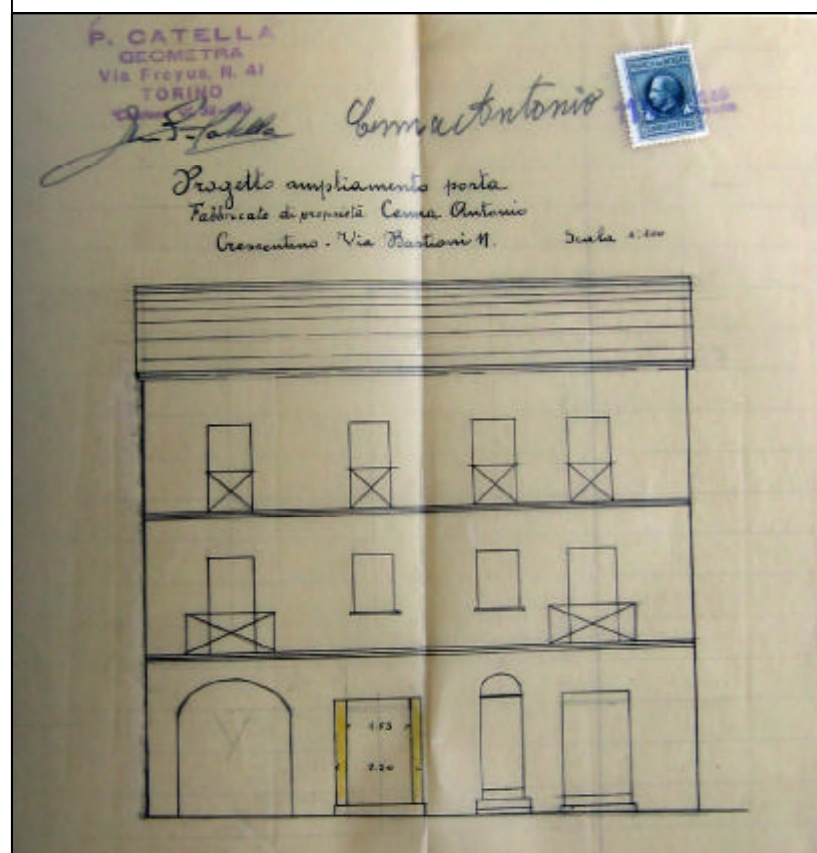 P. CATELLA
GEOMETRA
Via Frejus, N. 41
TORINO
Cenna Antonio
Progetto ampliamento porta
Fabbricato di proprietà Cenna Antonio
Crescentino - Via Bastioni N. Scala 1:100
1.53
2.20